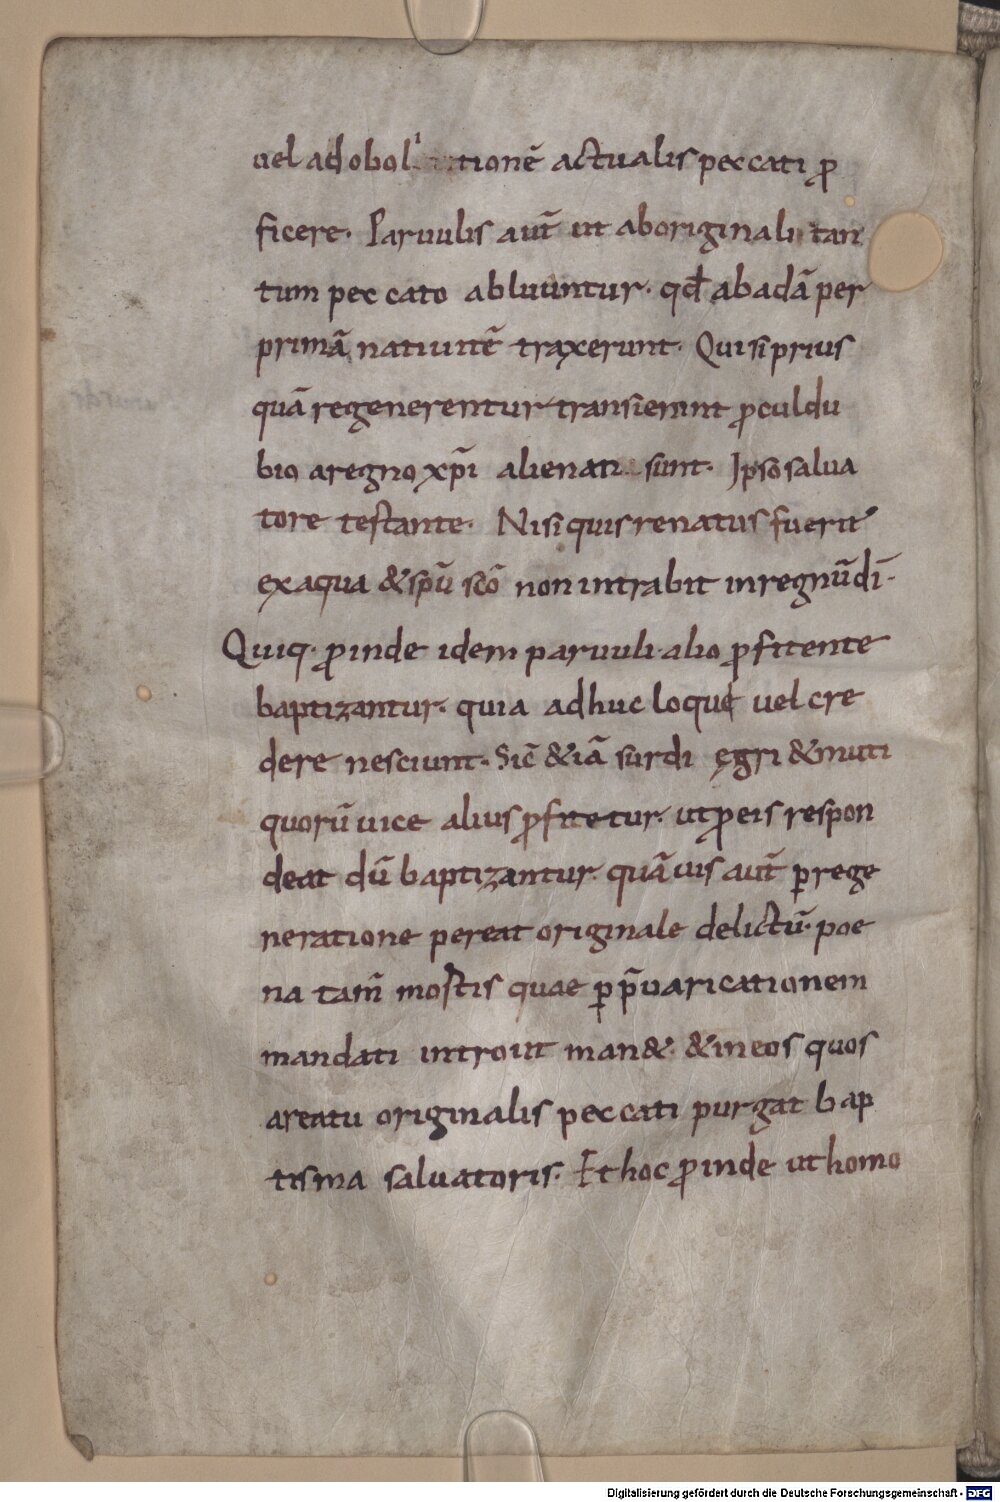 uel ad obol tionē actualis peccati ꝓ
ficere. Paruulis aut̄ ut ab originali tan
tum peccato abluuntur. qđ ab adā per
primā natiuitē traxerunt. Qui si prius
quā regenerentur transierint ꝓculdu
bio a regno xp̄i alienati sunt. Ipso salua
tore testante. Nisi quis renatus fuerit
ex aqua & sp̄u sc̄o non intrabit in regnū dī.
Quiq. ꝓinde idem paruuli alio ꝓfitente
baptizantur. quia adhuc loqui uel cre
dere nesciunt. Sic̄ & iā surdi ęgri & muti
quorū uice alius ꝓfitetur. ut ꝓ eis respon
deat dū baptizantur. quāuis aut̄ ꝑ rege
neratione pereat originale delictū. poe
na tam̄ mortis quae ꝑ p̄uaricationem
mandati introiit man&. & in eos quos
a reatu originalis peccati purgat bap
tisma saluatoris. Et hoc ꝓinde ut homo
Digitalisierung gefördert durch die Deutsche Forschungsgemeinschaft - DFG